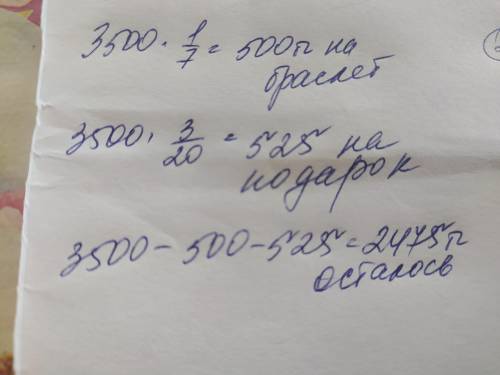 3500 · 1/7 = 500тг на
браслет
3500 · 3/20 = 525 на
подарок
3500 - 500 - 525 = 2475тг
осталось